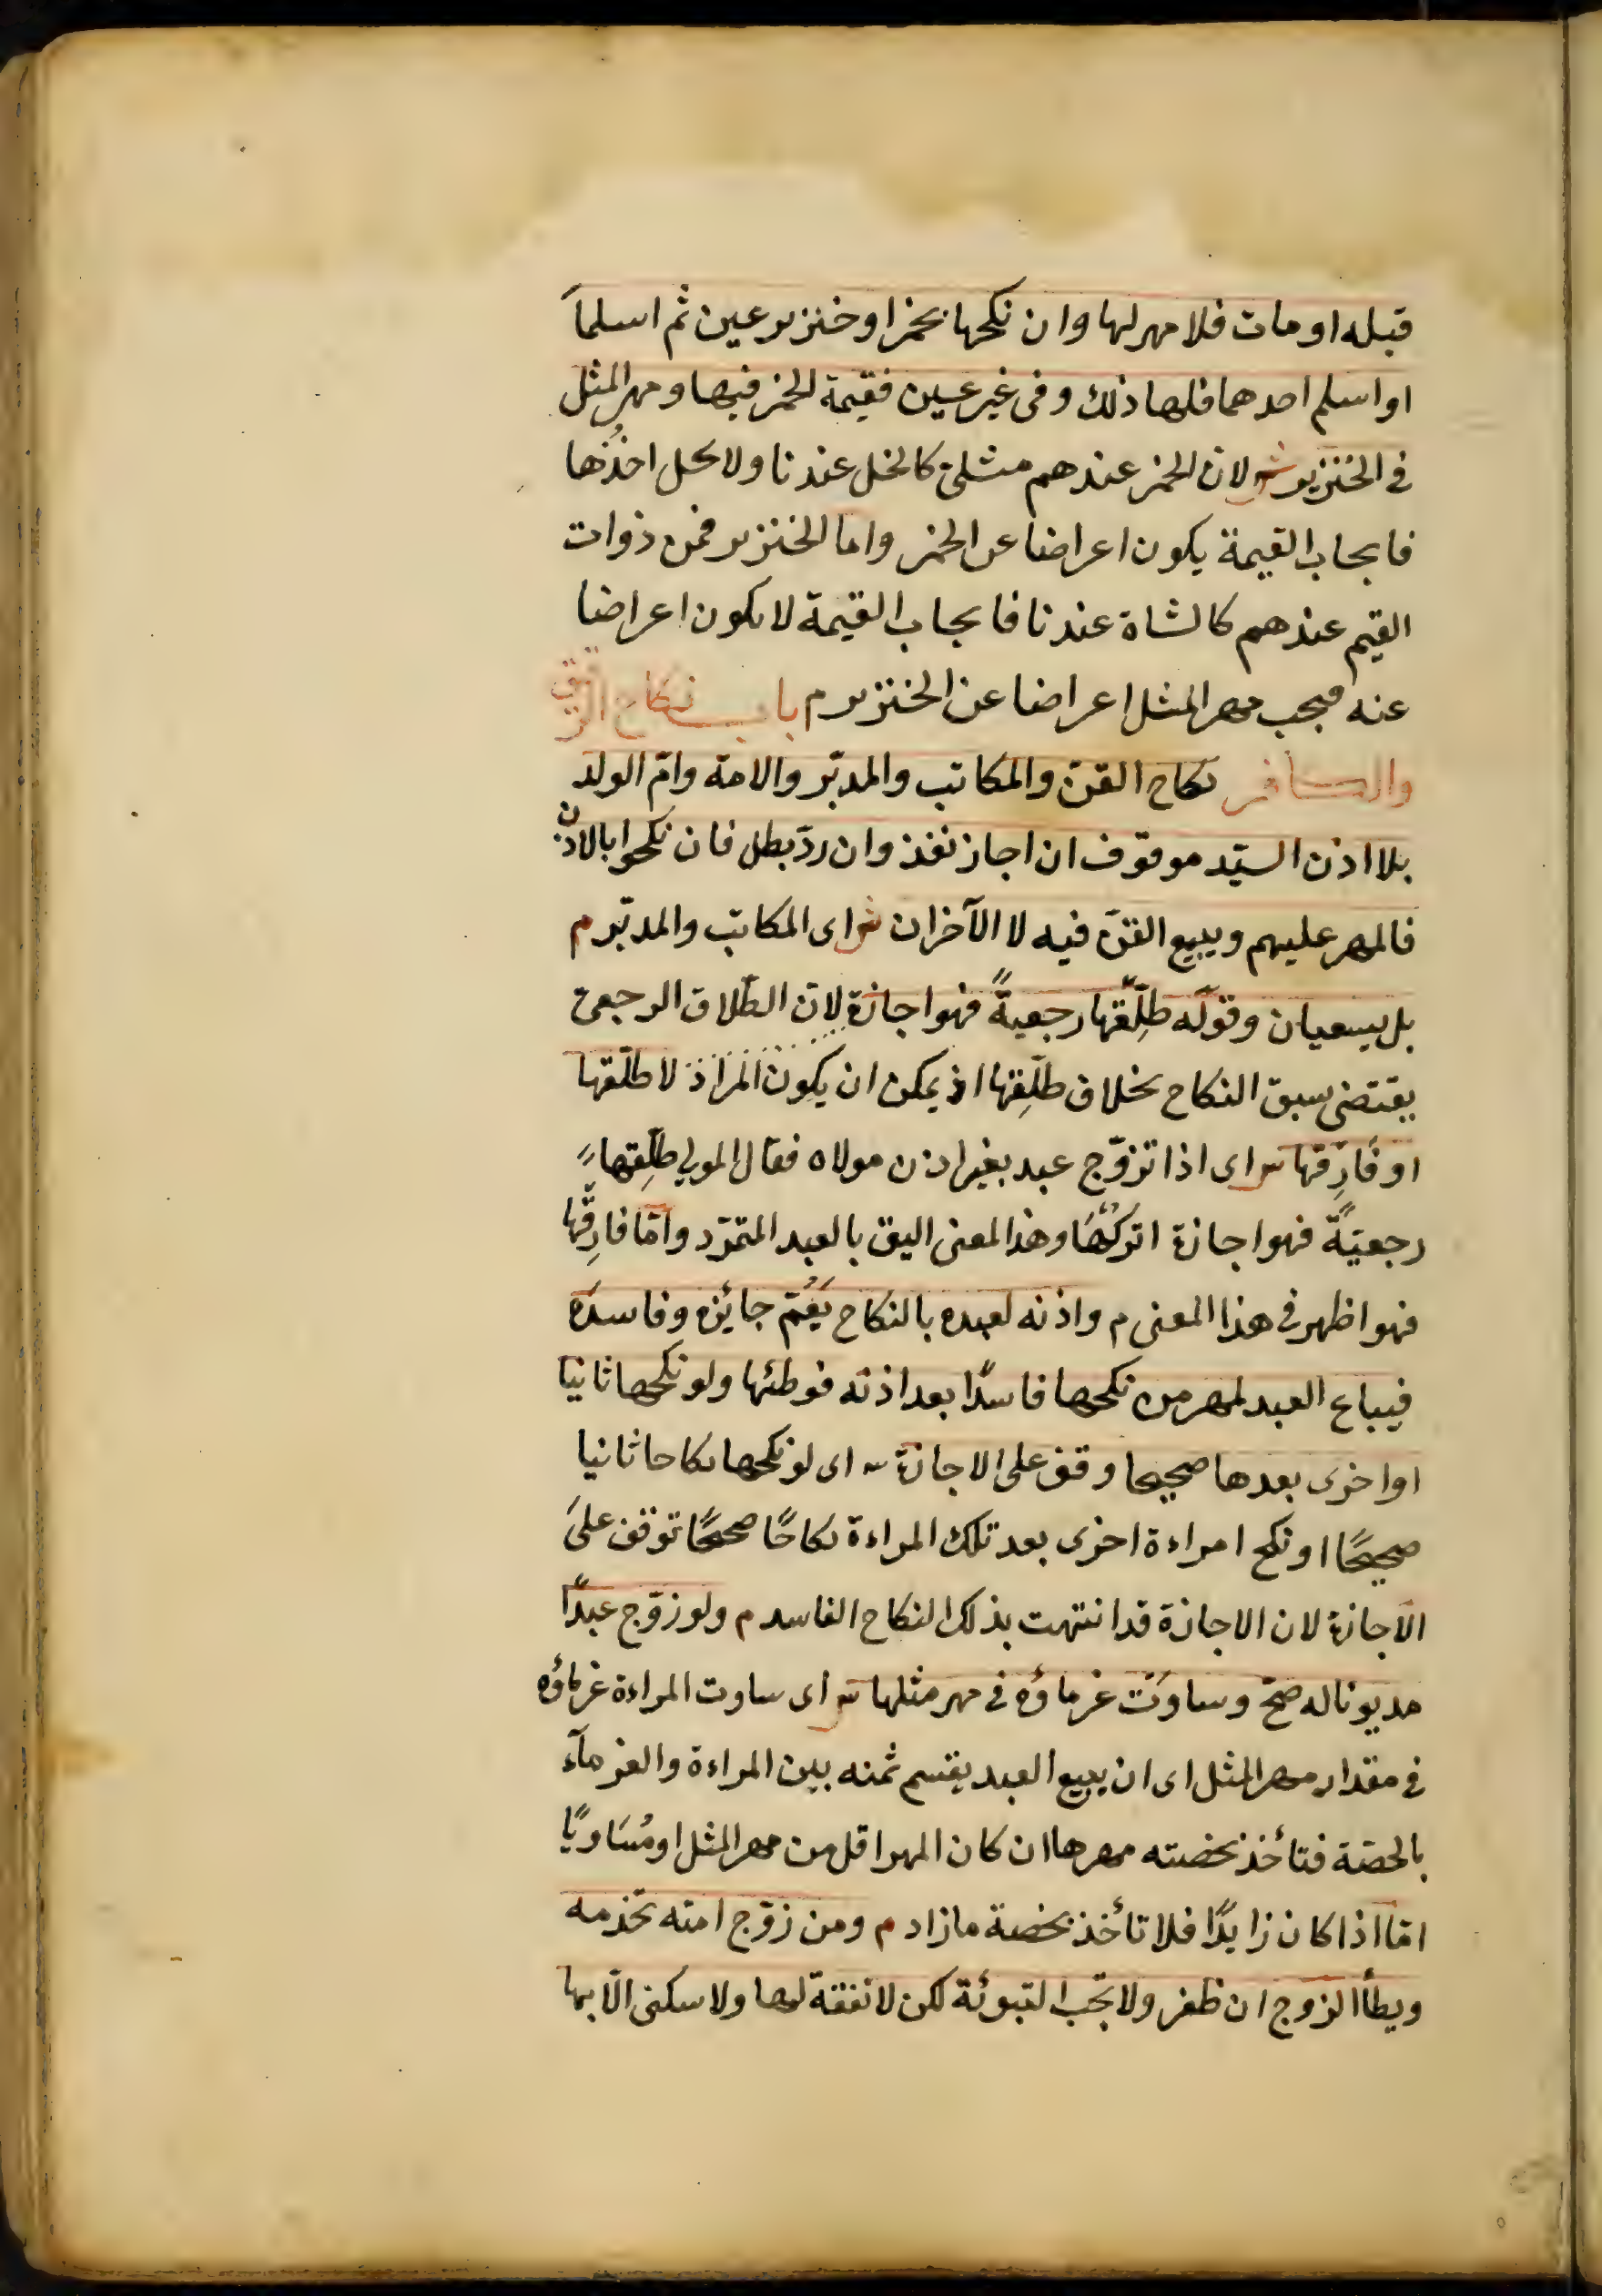 قبله او مات فلا مهر لها وان نكحها بخمر او خنزير عين ثم اسلما
او اسلم احدهما فلها ذلك وفى غير عين فقيمة الخمر فيها ومهر المثل
فى الخنزير ش لان الخمر عندهم مثلىّ كالخل عندنا ولا يحل اخذُها
فايجاب القيمة يكون اعراضا عن الخمر واما الخنزير فمن ذوات
القيم عندهم كالشاة عندنا فايجاب القيمة لا يكون اعراضا
عنه فيجب مهر المثل اعراضا عن الخنزير م باب نكاح الرقيق
والكافر نكاح القنّ والمكاتب والمدبّر والامة وامّ الولد
بلا اذن السيّد موقوف ان اجاز نفذ وان ردّ بطل فان نكحوا بالاذن
فالمهر عليهم وبيع القنّ فيه لا الآخران ش اى المكاتب والمدبّر م
بل يسعيان وقوله طلِّقها رجعيةً فهو اجازة لانّ الطّلاق الرجعى
يقتضى سبق النكاح بخلاف طلِّقها اذ يمكن ان يكون المراد لا طلّقها
او فارِقها ش اى اذا تزوّج عبد بغير اذن مولاه فقال المولى طلِّقها
رجعيّةً فهو اجازة اتركْها وهذا المعنى اليق بالعبد المتمرّد وامّا فارِقْها
فهو اظهر فى هذا المعنى م واذنه لعبده بالنكاح يَعُمّ جائزه وفاسدَه
فيباع العبد لمهر من نكحها فاسدًا بعد اذنه فوطئها ولو نكحها ثانيا
او اخرى بعدها صحيحا وقف على الاجازة ش اى لو نكحها نكاحا ثانيا
صحيحًا او نكح امراءة اخرى بعد تلك المراءة نكاحًا صحيحًا توقف على
الاجازة لان الاجازة قد انتهت بذلك النكاح الفاسد م ولو زوّج عبدًا
مديونا له صحّ وساوَتْ غرماؤه فى مهر مثلها ش اى ساوت المراءة غرماؤه
فى مقدار مهر المثل اى ان بيع العبد يقسم ثمنه بين المراءة والغرمآء
بالحصّة فتأخذ بحصته مهرها ان كان المهر اقل من مهر المثل او مُسَاويًا
امّا اذا كان زايدًا فلا تأخذ بحصة ما زاد م ومن زوّج امته تخدمه
ويطأ الزوج ان ظفر ولا تجب التبوئة لكن لا نفقة لها ولا سكنى الّا بها